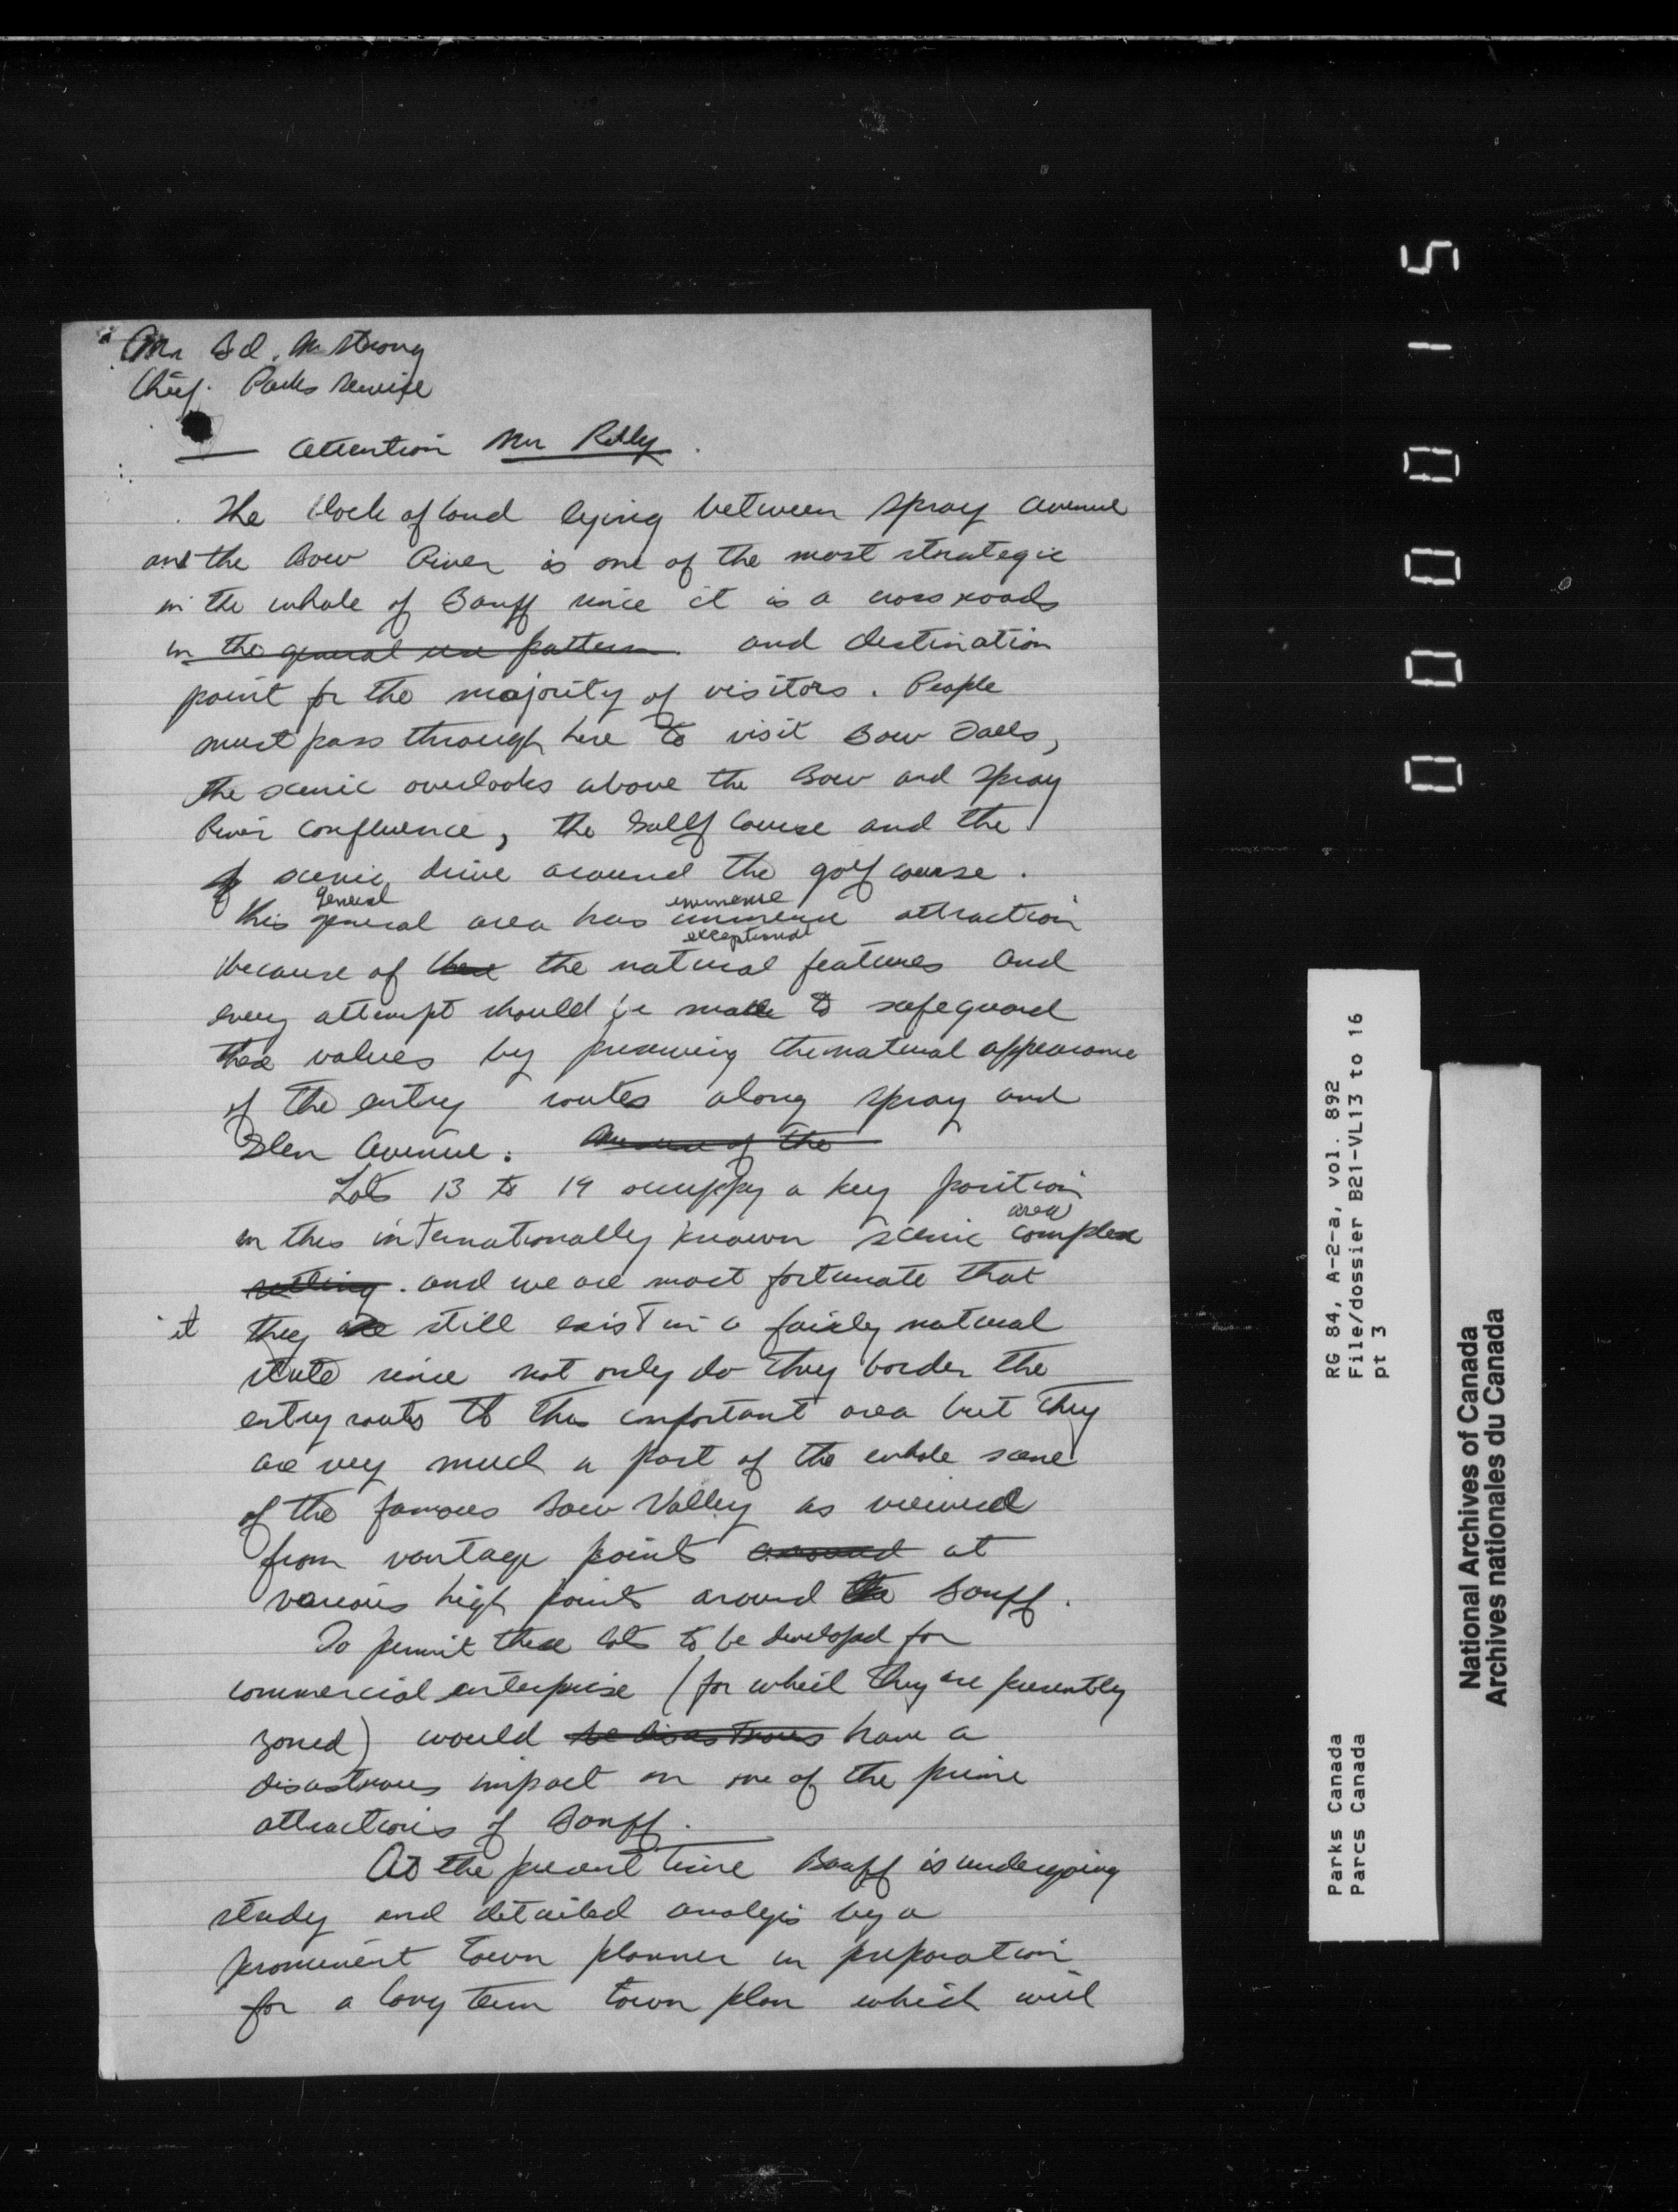 Mr Bd. M Strong
Chief. Parks Service
— Attention Mr Reilly.
The block of land lying between Spray Avenue
and the Bow River is one of the most strategic
in the whole of Banff since it is a cross roads
in the general use pattern and destination
point for the majority of visitors. People
must pass through here to visit Bow Falls,
the scenic overlooks above the Bow and Spray
River confluence, the Golf Course and the
scenic drive around the golf course.
general immense
This general area has immense attraction
exceptional
because of the natural features and
every attempt should be made to safeguard
these values by preserving the natural appearance
of the entry routes along Spray and
Glen Avenue. of the
Lots 13 to 19 occuppy a key position
area
in this internationally known scenic complex
setting. and we are most fortunate that
it they are still exist in a fairly natural
state since not only do they border the
entry routes to this important area but they
are very much a part of the whole scene
of the famous Bow Valley as viewed
from vantage points around at
various high points around the Banff.
To permit these lots to be developed for
commercial enterprise (for which they are presently
zoned) would be disastrous have a
disastrous impact on one of the prime
attractions of Banff.
At the present time Banff is undergoing
study and detailed analysis by a
prominent town planner in preparation
for a long term town plan which will
000015
RG 84, A-2-a, vol. 892
File/dossier B21-VL13 to 16
pt 3
Parks Canada
Parcs Canada
National Archives of Canada
Archives nationales du Canada